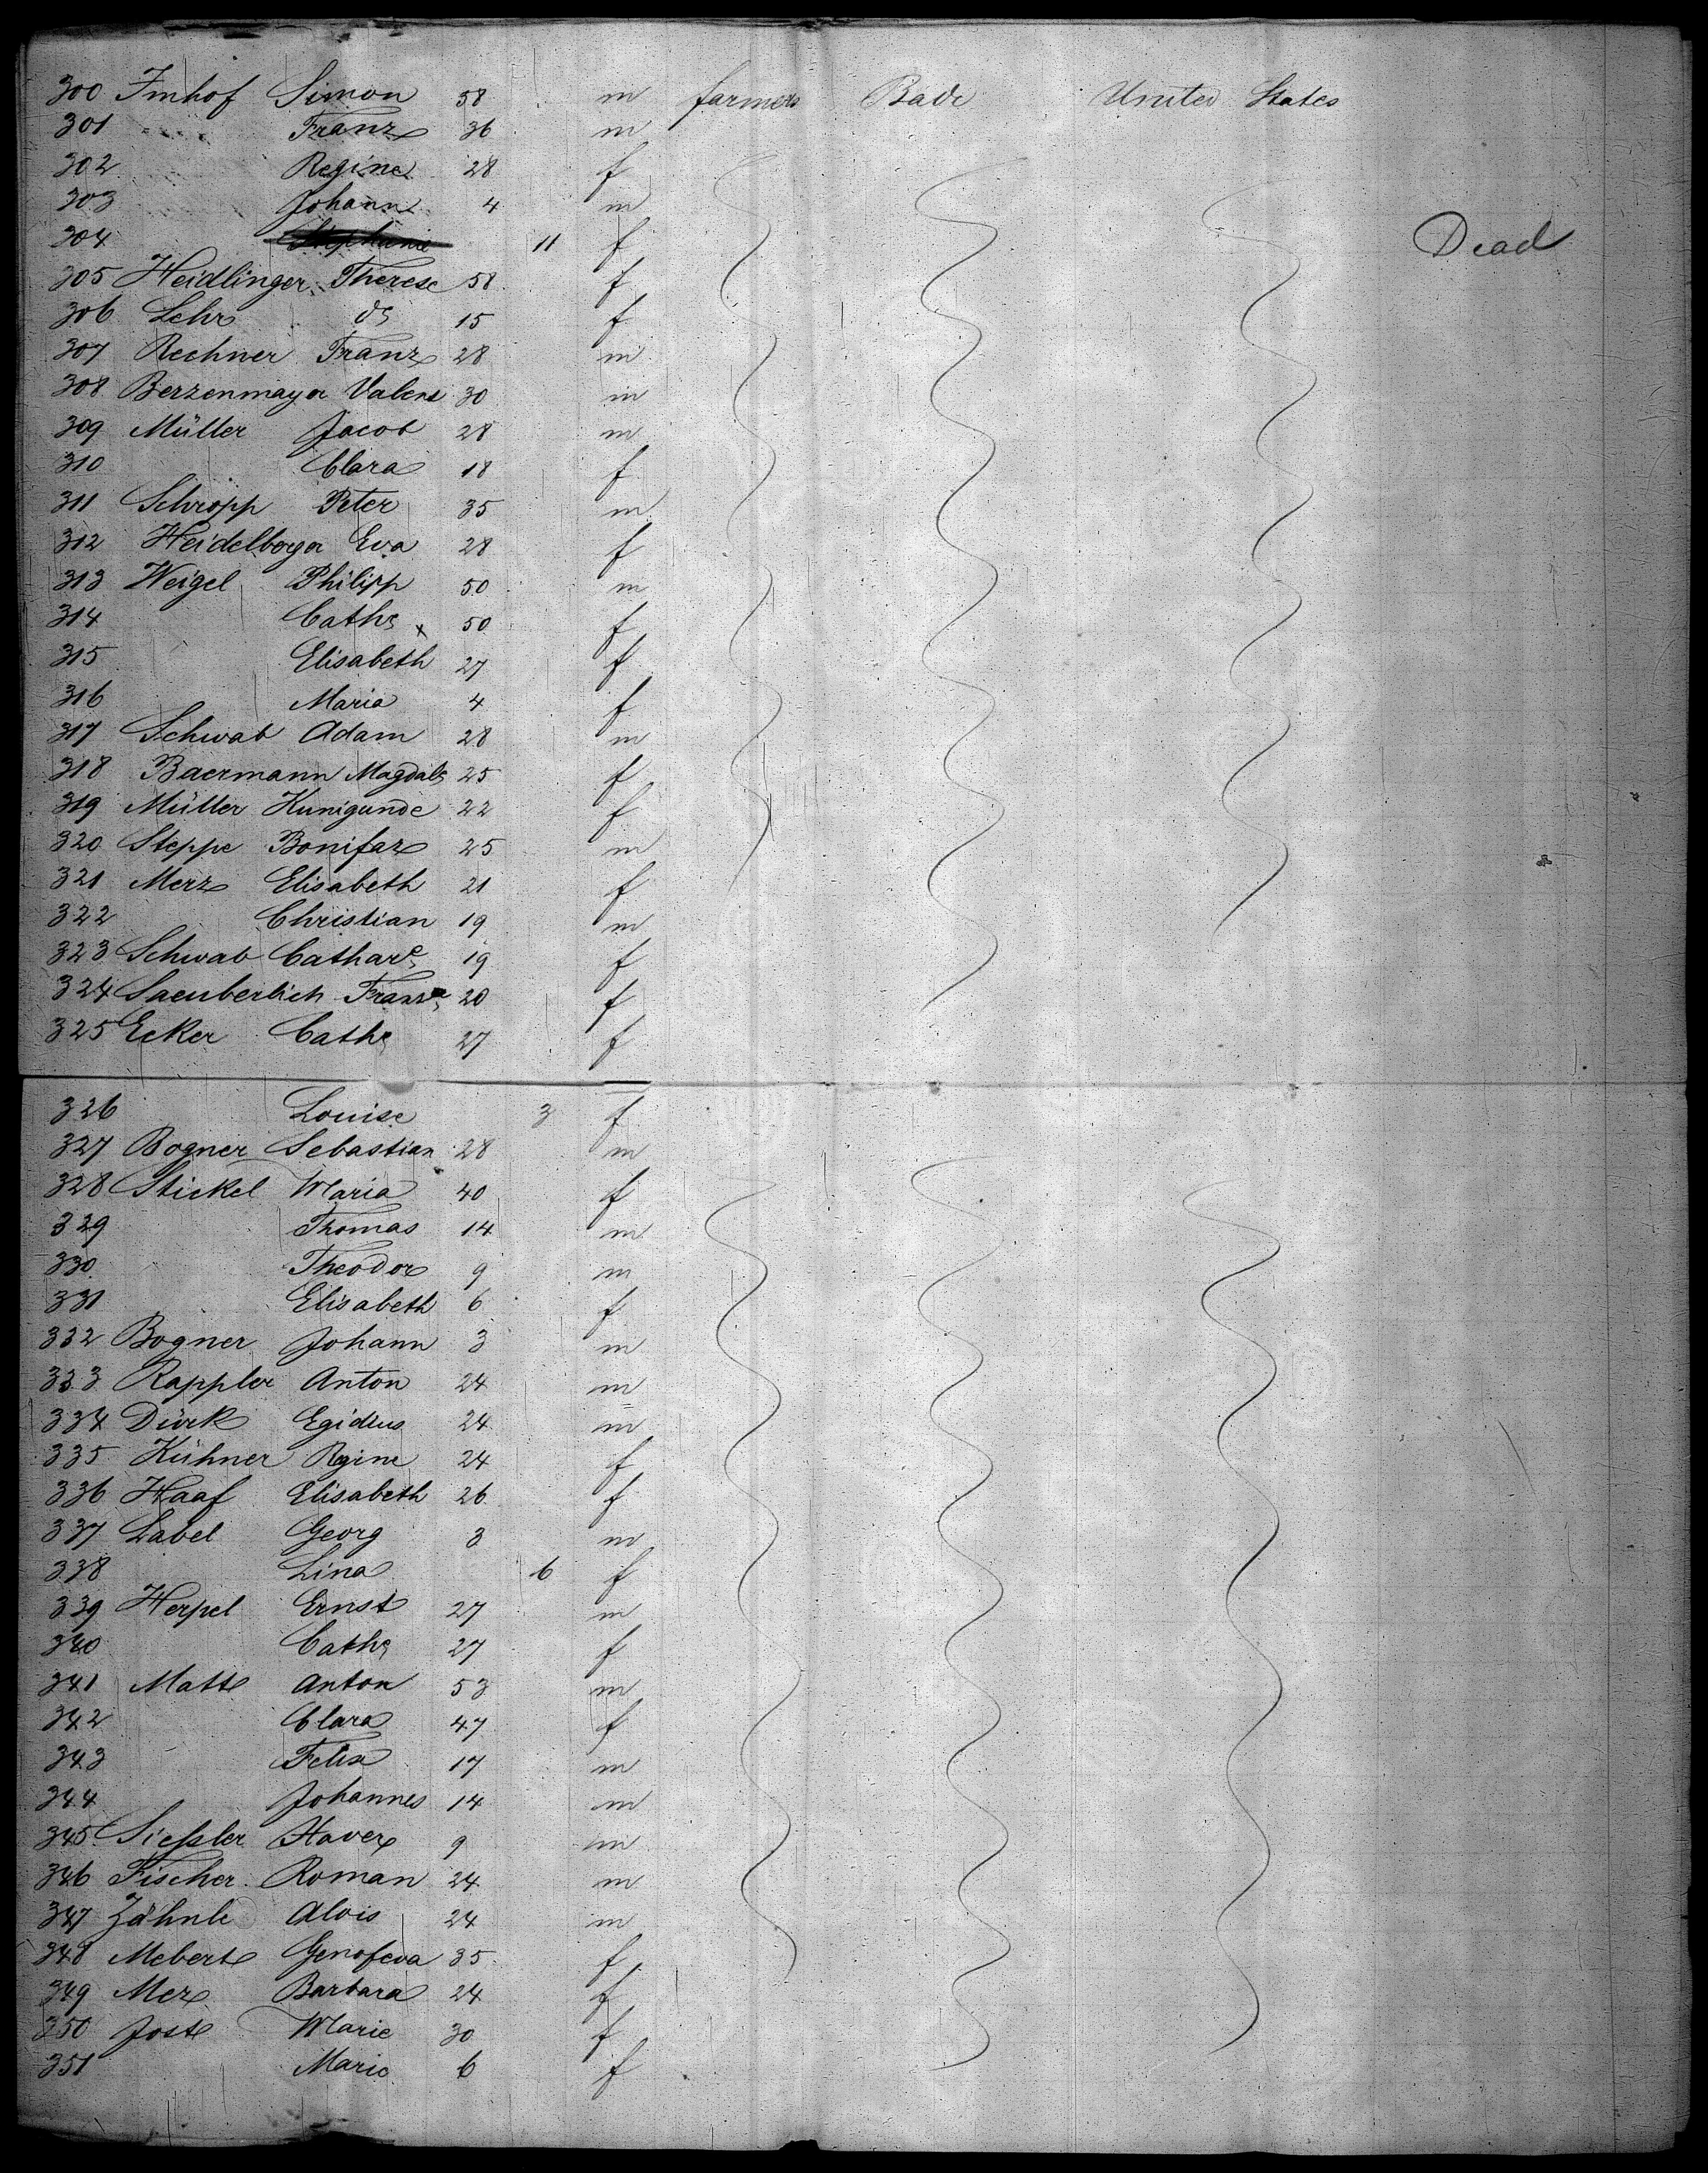 300 Imhof Simon 58 m farmers Bade United States
301 " Franz 36 m
302 Regine 28 f
303 Johann 4 m
304 Stephanie 11 f Dead
305 Heidlinger Therese 58 f
306 Lehr do 15 f
307 Rechner Franz 28 m
308 Berzenmayer Valens 30 m
309 Müller Jacob 28 m
310 Clara 18 f
311 Schropp Peter 35 m
312 Heidelberger Eva 28 f
313 Weigel Philipp 50 m
314 Cathe x 50 f
315 Elisabeth 27 f
316 Maria 4 f
317 Schwab Adam 28 m
318 Baermann Magdale 25 f
319 Müller Kunigunde 22 f
320 Steppe Bonifaz 25 m
321 Merz Elisabeth 21 f
322 Christian 19 m
323 Schwab Cathare 19 f
324 Saeuberlich Franze 20 f
325 Ecker Cathe 27 f
326 Louise 3 f
327 Bogner Sebastian 28 m
328 Stickel Maria 40 f
329 Thomas 14 m
330 Theodor 9 m
331 Elisabeth 6 f
332 Bogner Johann 3 m
333 Rappler Anton 24 m
334 Dürk Egidius 24 m
335 Kühner Regine 24 f
336 Haaf Elisabeth 26 f
337 Label Georg 3 m
338 Lina 6 f
339 Herpel Ernst 27 m
340 Cathe 27 f
341 Matt Anton 53 m
342 Clara 47 f
343 Felix 17 m
344 Johannes 14 m
345 Siessler Xaver 9 m
346 Fischer Roman 24 m
347 Zähnle Alois 24 m
348 Mebert Genofeva 35 f
349 Mex Barbara 24 f
350 Jost Marie 30 f
351 Marie 6 f